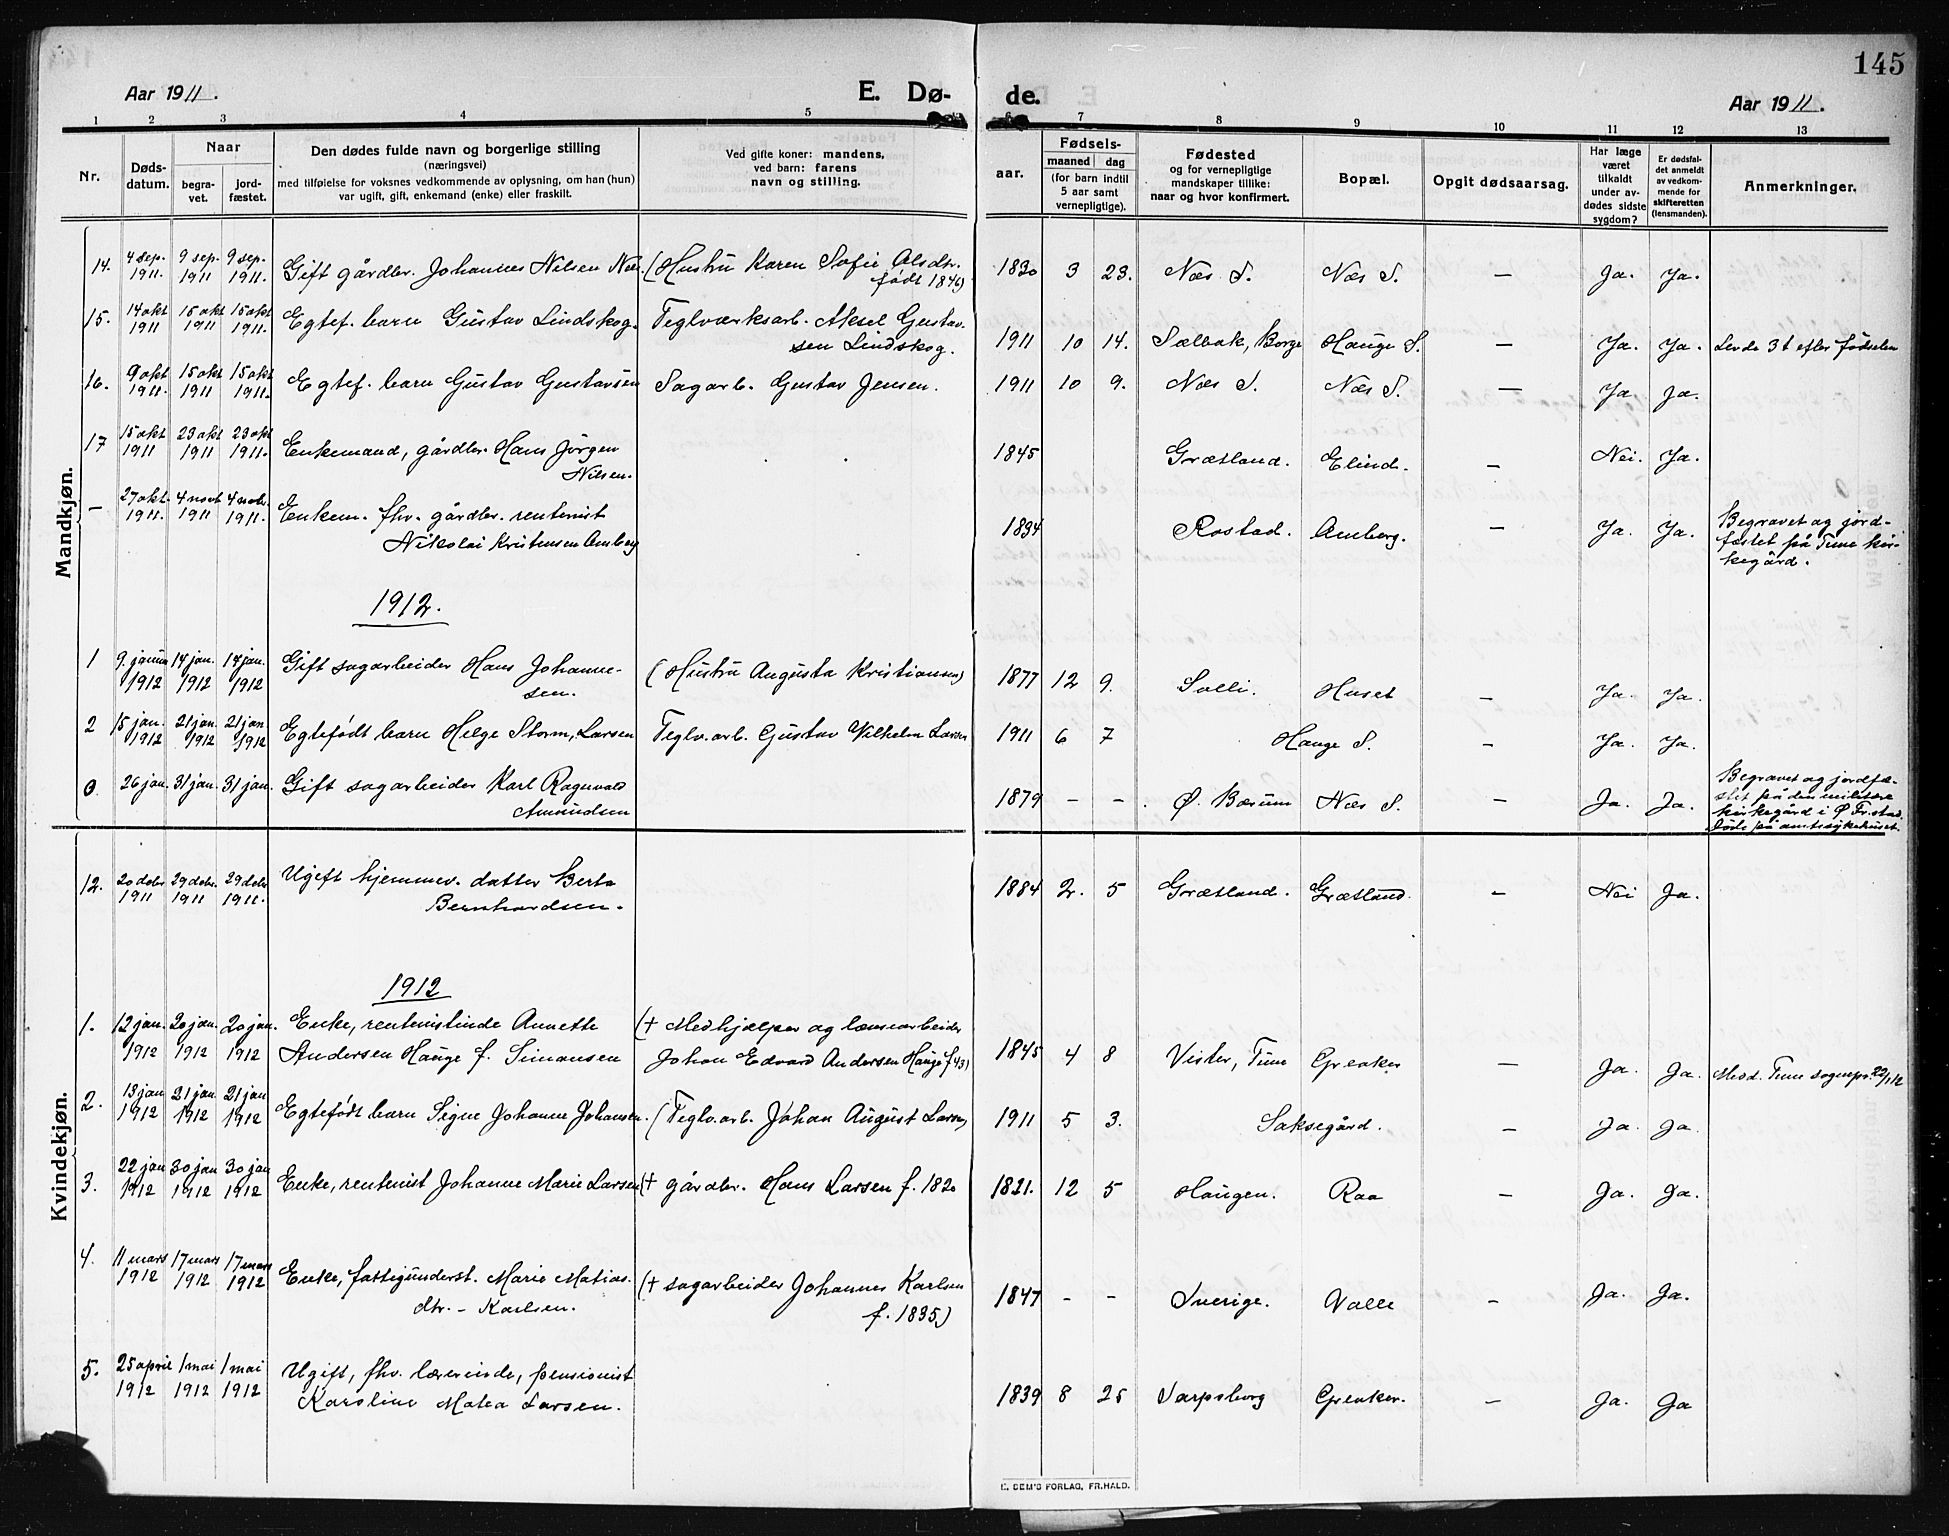 145
Aar 1911.
E. Dø-
de.
Aar 1911.
1 2 3 4 5 6 7 8 9 10 11 12 13
Nr.
Døds-
datum.
Naar
begra-
vet.
jord-
fæstet.
Den dødes fulde navn og borgerlige stilling
(næringsvei)
med tilføielse for voksnes vedkommende av oplysning, om han (hun)
var ugift, gift, enkemand (enke) eller fraskilt.
Ved gifte koner: mandens,
ved barn: farens
navn og stilling.
Fødsels-
aar.
maaned dag
(for barn indtil
5 aar samt
vernepligtige).
Fødested
og for vernepligtige
mandskaper tillike:
naar og hvor konfirmert.
Bopæl.
Opgit dødsaarsag.
Har læge
været
tilkaldt
under av-
dødes sidste
sygdom?
Er dødsfal-
det anmeldt
av vedkom-
mende for
skifteretten
(lensmanden).
Anmerkninger.
Mandkjøn.
14. 4 sep. 1911. 9 sep. 1911 9 sep. 1911. Gift gårdbr. Johannes Nilsen Nes. (Hustru Karen Sofie Olsdtr. født 1846) 1830 3 23. Næs S. Næs S. — Ja. Ja.
15. 14 okt 1911 15 okt 1911 15 okt 1911. Egtef. barn Gustav Lindskog. Teglværksarb. Aksel Gustav-
sen Lindskog. 1911 10 14. Sælbak, Borge Hauge S. — Ja. Ja. Levde 3 t efter fødselen
16. 9 okt 1911. 15 okt 1911 15 okt 1911. Egtef. barn Gustav Gustavsen Sagarb. Gustav Jensen. 1911 10 9. Næs S. Næs S. — Ja Ja.
17 15 okt 1911 23 okt 1911 23 okt 1911. Enkemand, gårdbr. Hans Jørgen
Nilsen. 1845 Grætland. Elind. — Nei. Ja.
— 27 okt. 1911. 4 novb 1911 4 novbr. 1911. Enkem. fhv. gårdbr. rentenist
Nikolai Kristensen Amberg 1834 Rostad. Amberg. — Ja. Ja. Begravet og jord-
fæstet på Tune kir-
kegård.
1912.
1 9. januar 1912 14 jan. 1912 14 jan. 1912 Gift sagarbeider Hans Johanne-
sen. (Hustru Augusta Kristiansen) 1877 12 9. Solli. Huset — Ja. Ja.
2 15 jan. 1912 21 jan. 1912 21 jan. 1912 Egtefødt barn Helge Storm, Larsen Teglv.arb. Gustav Vilhelm Larsen 1911 6 7 Hauge S. — Ja. Ja.
0 26 jan. 31 jan. 31 jan. Gift sagarbeider Karl Ragnvald
Amundsen 1879 - - Ø. Bærum Næs S. — Ja. Ja. Begravet og jordfæ-
stet på den militære
kirkegård i Ø Fr.stad.
Døde på amtssykehuset.
Kvindekjøn.
12. 20 debr 1911 29 debr. 1911 29 debr 1911. Ugift hjemmev. datter Berta
Bernhardsen. 1884 2. 5 Grætland. Grætland. — Nei Ja.
1912
1. 12 jan. 1912 20 jan. 1912 20 jan. 1912 Enke, rentenistinde Annette
Andersen Hauge f. Simonsen (+ Medhjælper og lænsearbeider
Johan Edvard Andersen Hauge f. 43) 1845 4 8 Vister, Tune Greaker — Ja. Ja. Medd. Tune sognepr. 22/1 12
2. 13 jan 1912 21 jan 1912 21 jan 1912 Egtefødt barn Signe Johanne Johansen. (Teglv.arb. Johan August Larsen) 1911 5 3. Saksegård. — Ja. Ja.
3. 22 jan 1912 30 jan 1912 30 jan 1912 Enke, rentenist Johanne Marie Larsen (+ gårdbr. Hans Larsen f. 1820 1821. 12 5 Haugen. Raa — Ja. Ja.
4. 11 mars 1912 17 mars 1912 17 mars 1912 Enke, fattigunderst. Marie Matias-
dtr. - Karlsen. (+ sagarbeider Johannes Karlsen
f. 1835) 1847 - - Sverige. Valle — Ja. Ja.
5. 25 april 1912 1 mai 1912 1 mai 1912 Ugift, fhv. lærerinde, pensionist
Karoline Matea Larsen. 1839 8 25 Sarpsborg Greaker. — Ja. Ja
E. SEM'S FORLAG, FR.HALD.